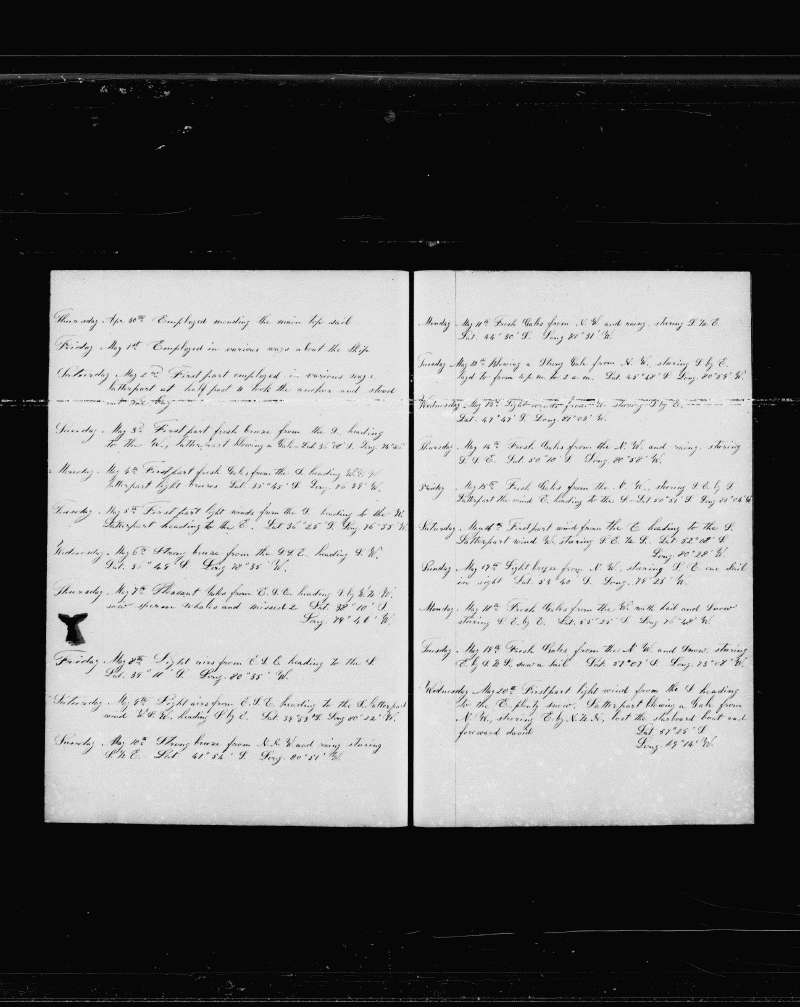 Thursday Apr 30th Employed mending the main top sail
Friday May 1st Employed in various ways about the Ship
Saturday May 2nd First part employed in various ways
latterpart at half past 4 took the anchor and stood
out the Bay
Sunday May 3d First part fresh breeze from the S. heading
to the W. latterpart blowing a Gale Lat 36°08 S. Long 74°45
Monday May 4th First part fresh Gales from the S. heading W.S.W.
latterpart light breezes Lat 35°45 S Long 75°39 W.
Tuesday May 5th First part light winds from the S. heading to the W.
Latterpart heading to the E. Lat 36°25 S. Long 76°55 W.
Wednesday May 6th Strong breeze from the S.S.E. heading S.W.
Lat. 36°48 S. Long 78°35 W.
Thursday May 7th Pleasant Gales from E.S.E. heading S. by W. ½ W.
saw sperm whales and missed 2 Lat 38°10 S
Long. 79°40 W.
Friday May 8th Light airs from E.S.E. heading to the S
Lat. 39°11 S. Long. 80°35 W.
Saturday May 9th Light airs from E.S.E. heading to the S. latterpart
wind W.S.W. heading S by E. Lat 39°53 S. Long 80°52 W.
Sunday May 10th Strong breeze from N.N.W. and rainy staring
S. ½ E. Lat. 41°54 S Long. 80°51 W.
Monday May 11th Fresh Gales from N.W. and rainy. staring S. ½ E.
Lat. 44°30 S. Long 81°31 W.
Tuesday May 12th Blowing a Strong Gale from N.W. staring S by E.
layd to from 4 p.m. to 2 a.m. Lat 45°48 S. Long. 80°59 W.
Wednesday May 13th Light winds from W. staring S by E.
Lat. 47°47 S. Long. 81°03 W.
Thursday May 14th Fresh Gales from the N.W. and rainy. staring
S.S.E. Lat. 50°10 S Long. 80°58 W.
Friday May 15th Fresh Gales from the N.W. staring S.E. by S.
Latterpart the wind E. heading to the S. Lat 50°51 S. Long 81°04 W.
Saturday May 16th First part wind from the E. heading to the S.
Latterpart wind W. staring S.E. ½ S. Lat. 52°08 S.
Long. 80°28 W.
Sunday May 17th Light breeze from N.W. staring S.E. one sail
in sight Lat. 53°40 S. Long. 78°25 W.
Monday May 18th Fresh Gales from the W. with hail and Snow
staring S.E. by E. Lat. 55°25 S. Long 76°48 W.
Tuesday May 19th Fresh Gales from the N.W. and Snow. staring
E. by S. ½ S. saw a sail Lat. 57°07 S Long. 73°08 W.
Wednesday May 20th First part light wind from the S heading
to the E. plenty snow. Latterpart blowing a Gale from
N.W. staring E. by N. ½ N. lost the starboard boat and
foreward davit Lat. 57°25 S
Long. 69°14 W.